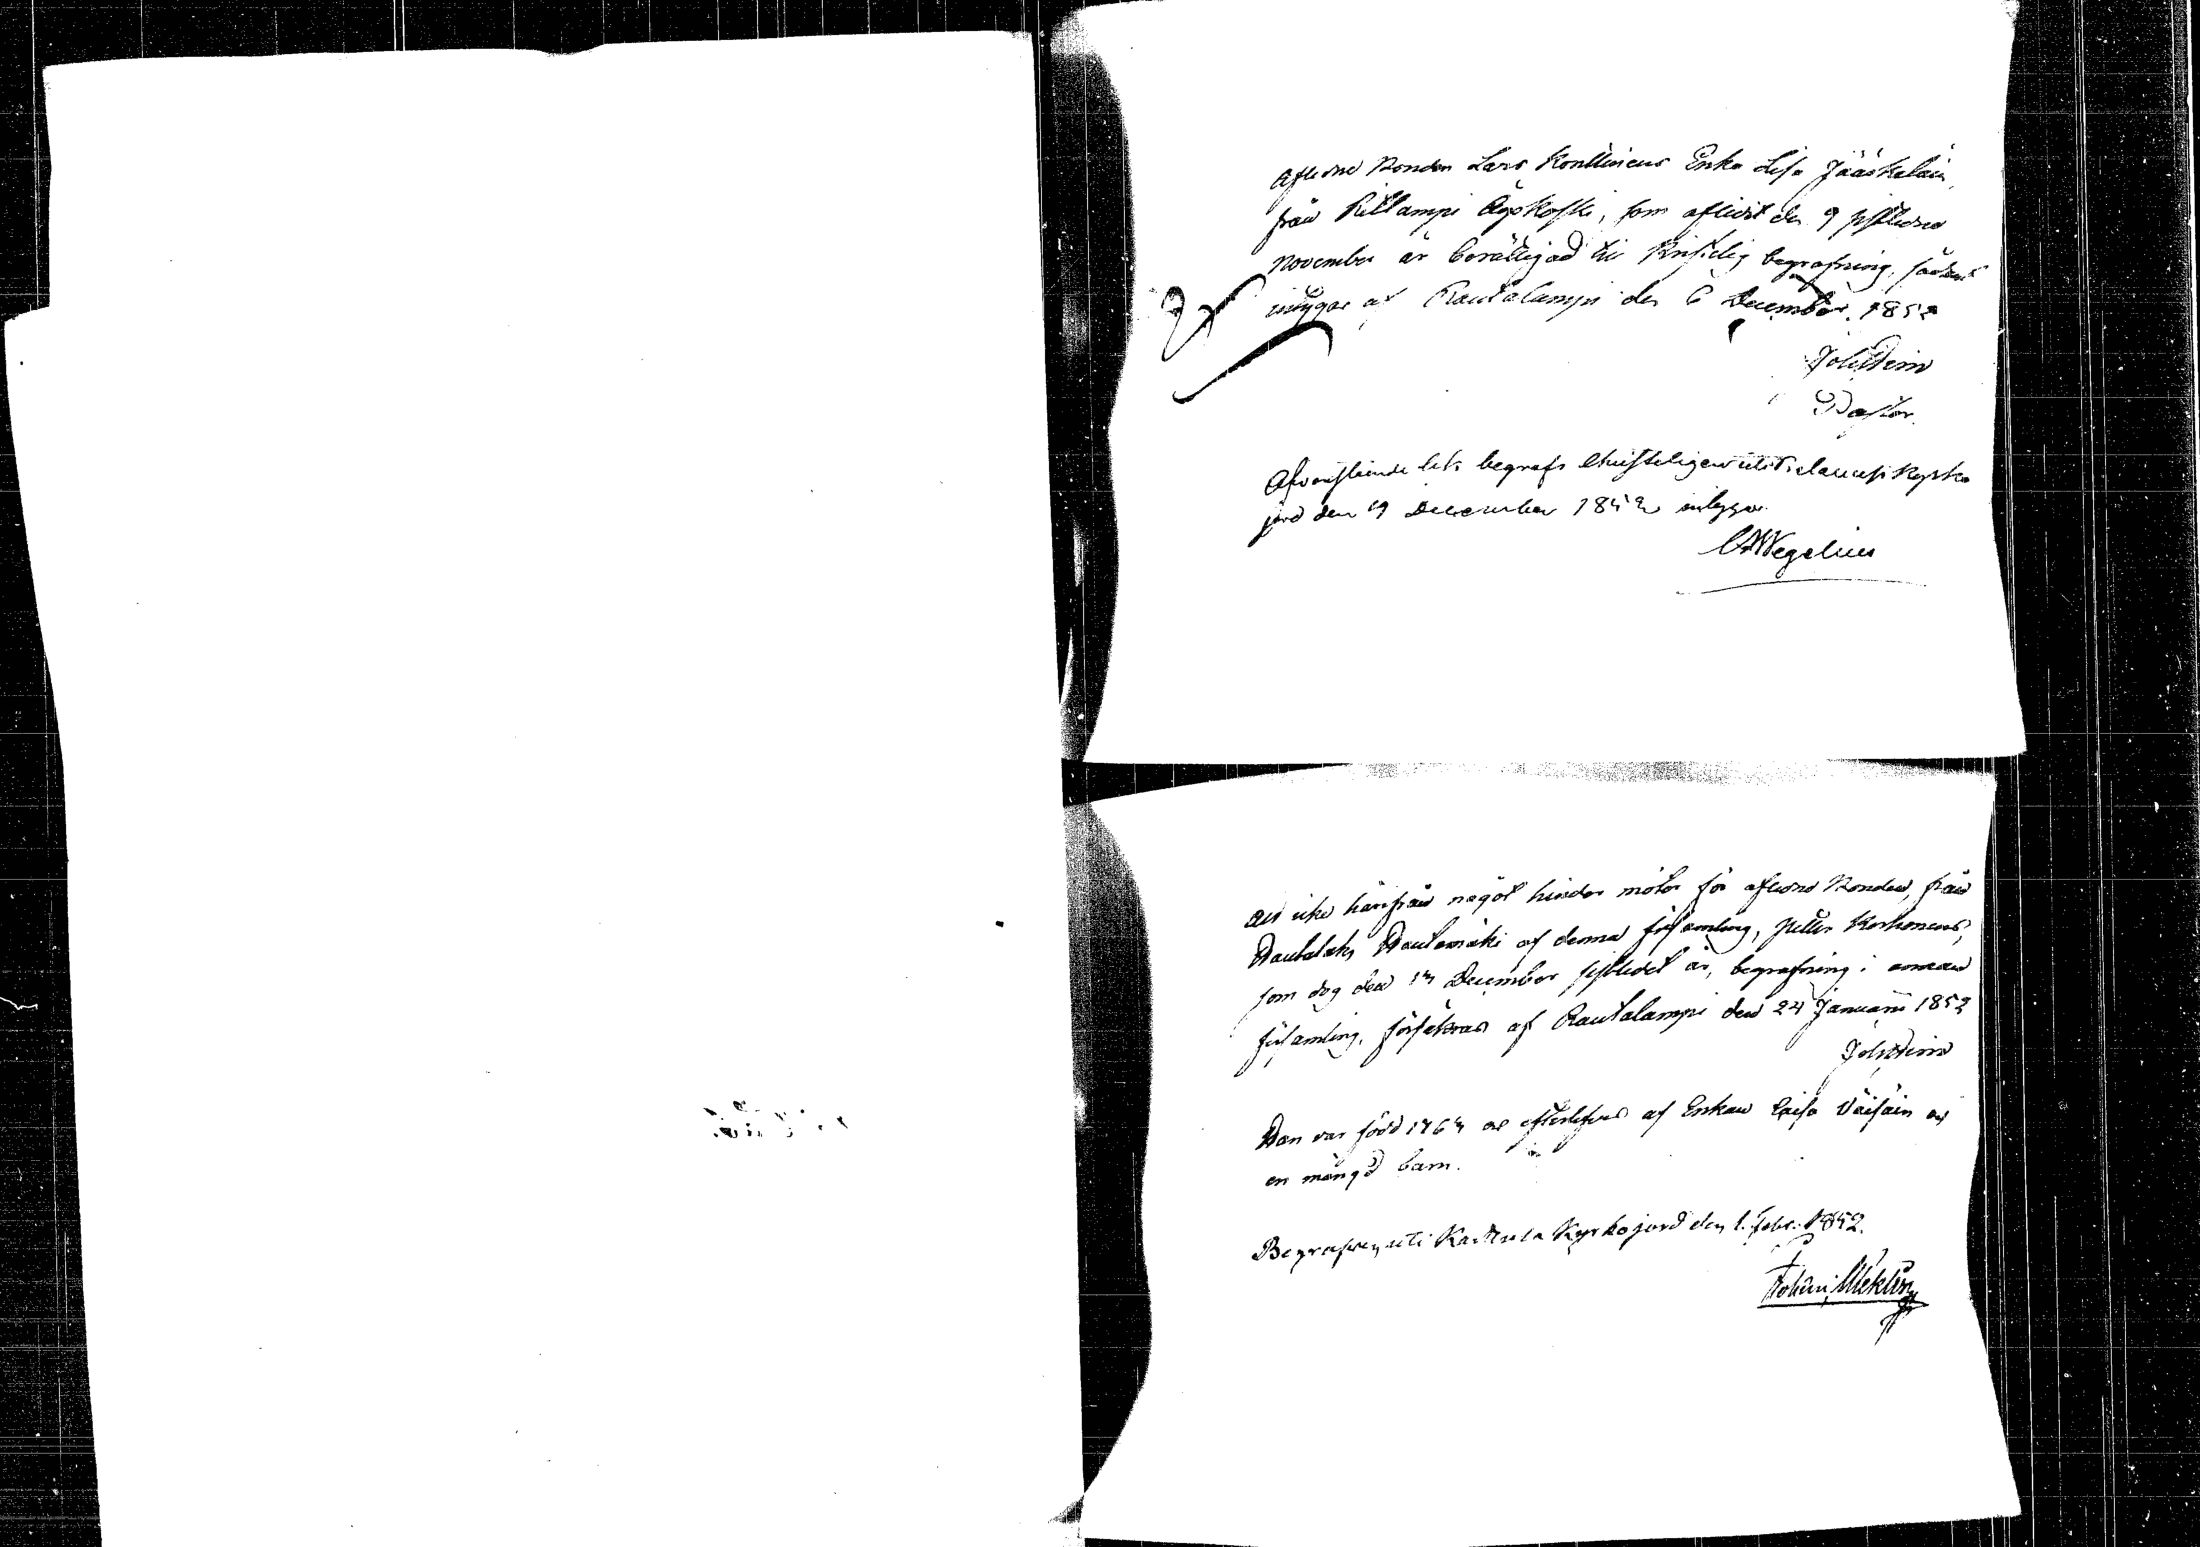 Aflidne Bonden Lars Konttinens Enka Lisa Jääskeläin,
från Rittlampi Äyskoski, som aflidit den 9 sistledne
November är berättigad till Kristelig begrafning, sådant
intygas af Rautalampi den 6 December 1852
Joh. Hein
Pastor.
Ofvanstående lik begrafs Christeligen uti Kyrko
jord den 19 December 1852 intygar
Wegelius
Att icke härifrån något hinder möter för aflidne Bonden, från
Hautolaks Hautamäki af denna församling, Petter Korhonens,
som dog den December sistledet år, begrafning i annan
församling, försäkras af Rautalampi den 24 Januarii 1852
Joh. Hein
Han var född 1764 och efterlefves af Enkan Caisa Väisäin och
en mängd barn.
Begrafven uti Karttula Kyrkojord den 1. Febr. 1852.